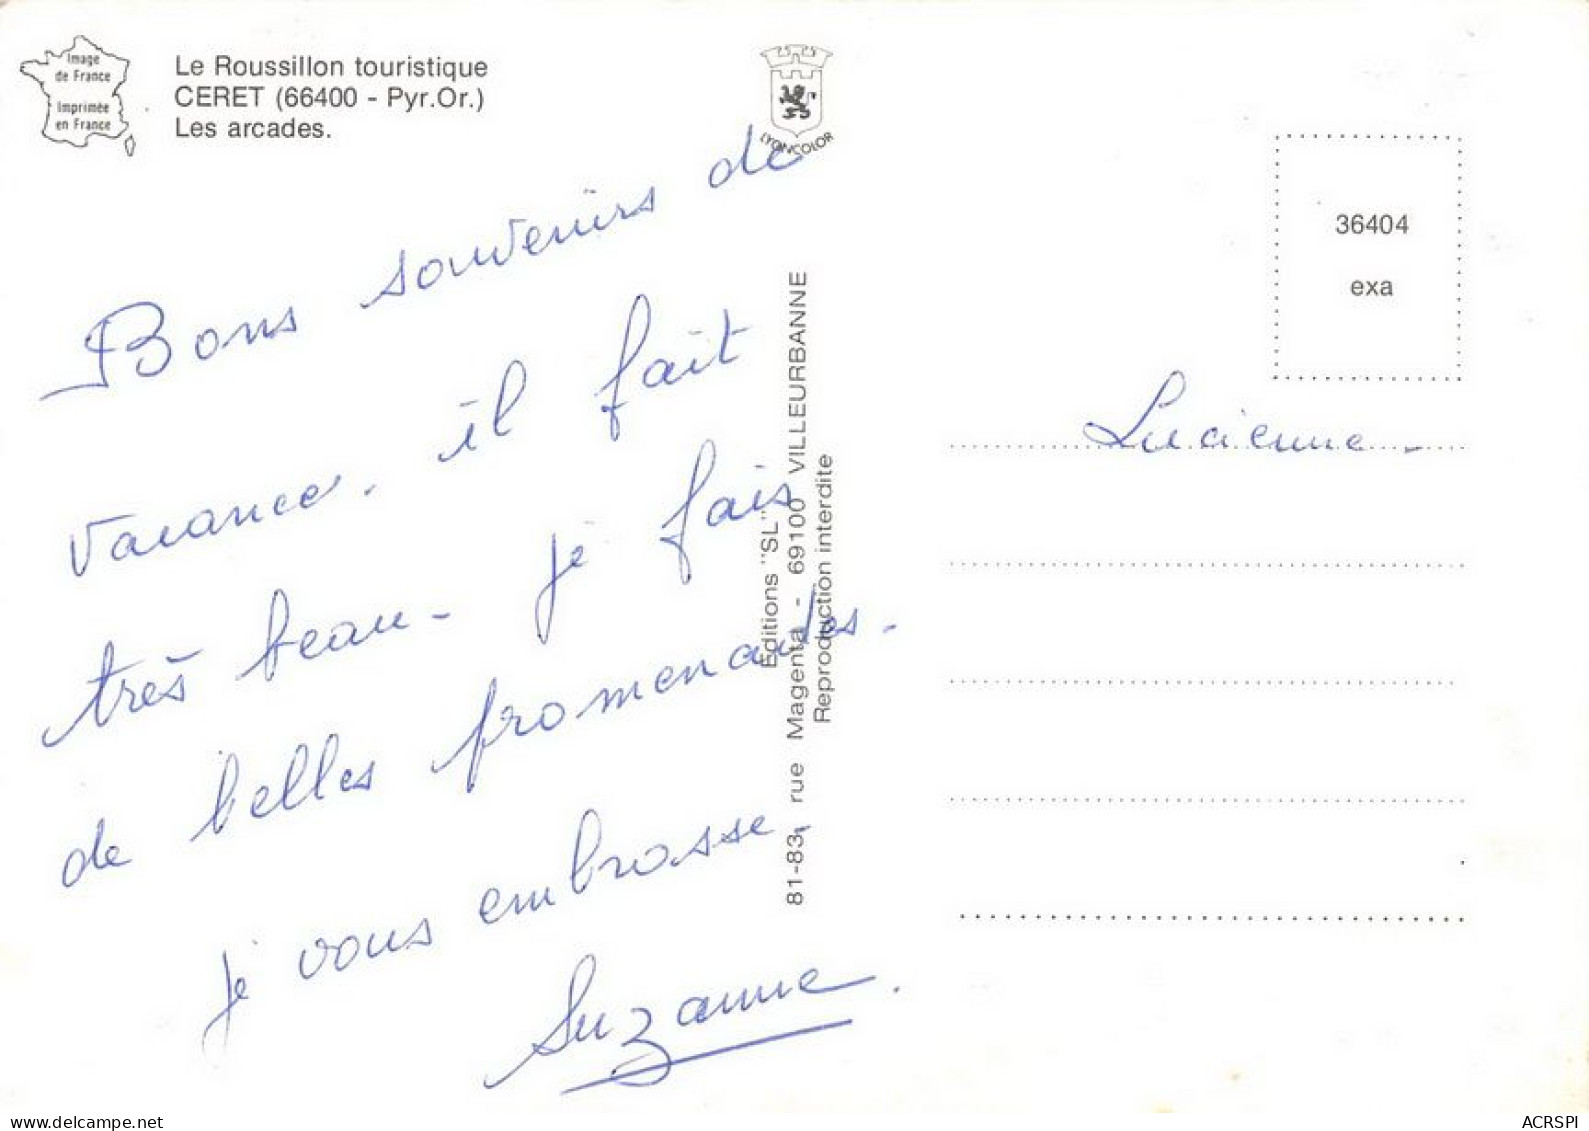 Image
de France
Imprimée
en France
Le Roussillon touristique
CERET (66400 - Pyr.Or.)
Les arcades.
LYONCOLOR
Bons souvenirs de
vacance. il fait
très beau - je fais
de belles promenandes.
je vous embrasse.
Suzanne.
Editions "SL"
81-83, rue Magenta - 69100 VILLEURBANNE
Reproduction interdite
36404
exa
Lucienne -
www.delcampe.net
ACRSPI